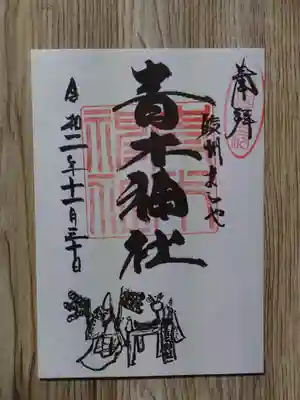 奉拝
駿州よしや
青木神社
令和二年十一月三十日